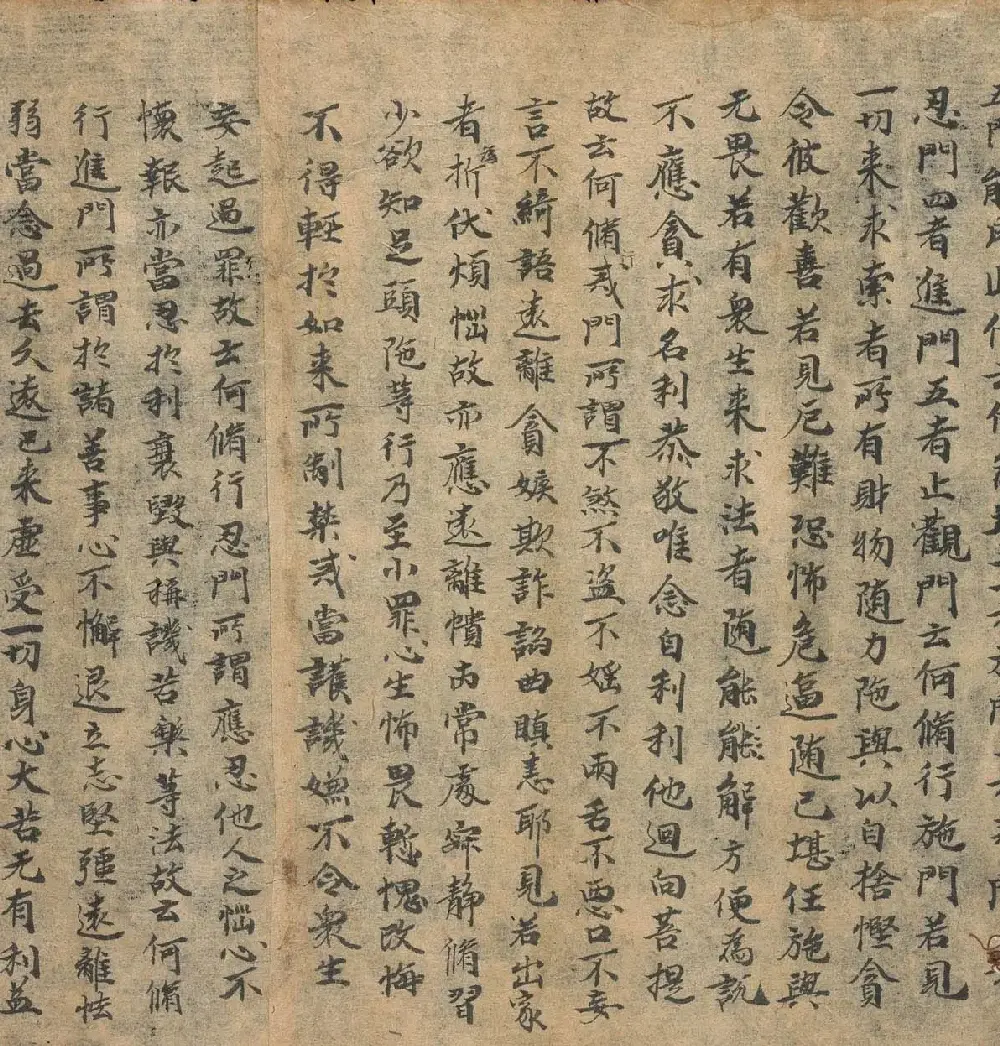 忍門四者進門五者止觀門云何脩行施門若見
一切来求索者所有財物随力施與以自捨慳貪
令彼歡喜若見厄難恐怖危逼随己堪任施與
无畏若有衆生来求法者随能能解方便為說
不應貪求名利恭敬唯念自利利他迴向菩提
故云何脩行戒門所謂不煞不盗不婬不兩舌不惡口不妄
言不綺語遠離貪嫉欺詐諂曲瞋恚耶見若出家
者為折伏煩惱故亦應遠離憒丙常處寂静脩習
少欲知足頭陁等行乃至小罪心生怖畏慙愧改悔
不得輕於如来所制禁戒當護譏嫌不令衆生
妄起過罪故云何脩行忍門所謂應忍他人之惱心不
懷報亦當忍於利衰毀與稱譏苦樂等法故云何脩
行進門所謂於諸善事心不懈退立志堅强遠離怯
弱當念過去久遠已来虛受一切身心大苦无有利益